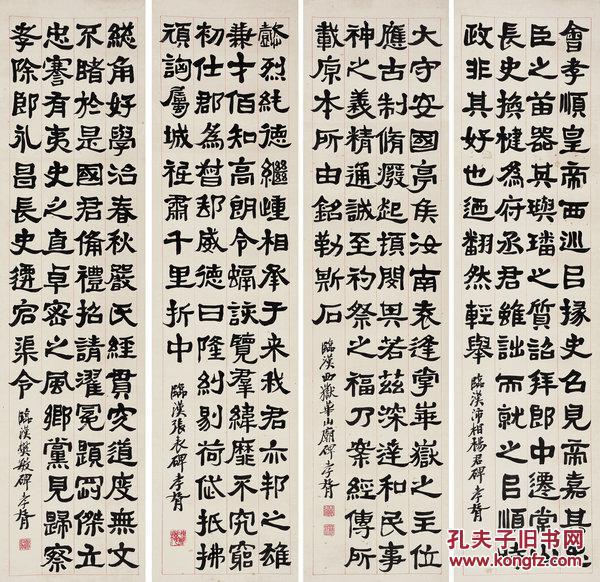 會孝順皇帝西巡以掾史召見帝嘉其忠
臣之苗器其璵璠之質詔拜郎中遷常山
長史換楗為府丞君雖詘而就之以順時
政非其好也迺翻然輕舉
臨漢沛相楊君碑 孝胥
大守安國亭侯汝南袁逢掌華嶽之主位
應古制脩癈起頓閔其若茲深達和民事
神之義精通誠至礿祭之福乃案經傳所
載原本所由銘勒斯石
臨漢西嶽華山廟碑 孝胥
懿烈純德繼踵相承于來我君亦邦之雄
兼才佰知高朗令融該覽羣緯靡不究窮
初仕郡為督郵威德曰隆糾剔荷忒抵拂
頑訩屬城祗肅千里折中
臨漢張表碑 孝胥
緫角好學治春秋嚴氏經貫究道度無文
不睹於是國君備禮招請濯冕題剛傑立
忠謇有夷史之直卓密之風鄉黨見歸察
孝除郎永昌長史遷宕渠令
臨漢樊敏碑 孝胥
孔夫子旧书网
KONGFZ.COM